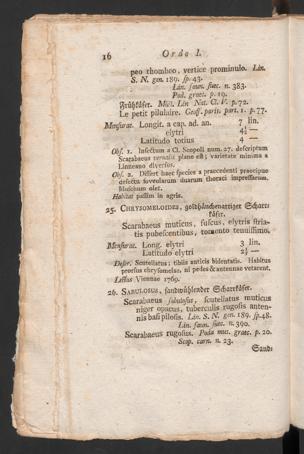 16 Ordo I.
peo rhombeo, vertice prominulo. Lin.
S. N. gen. 189. sp. 43.
Lin. faun. suec. n. 383.
Pod. graec. p. 19.
Frühkäfer. Müll. Lin. Nat. Cl. V. p. 72.
Le petit pilulaire. Geoff. paris. part. 1. p. 77.
Mensurae. Longit. a cap. ad. an. 7 lin.
elytri 4½ —
Latitudo totius 4 —
Obs. 1. Insectum a Cl. Scopoli num. 27. descriptum
Scarabaeus vernalis plane est; varietate minima a
Linneano diversus.
Obs. 2. Differt haec species a praecedenti praecipue
defectu foveolarum duarum thoraci impressarum.
Muschum olet.
Habitat passim in agris.
25. CHRYSOMELOIDES, goldhähnenartiger Scharr-
käfer.
Scarabaeus muticus, fuscus, elytris stria-
tis pubescentibus, tomento tenuissimo.
Mensurae. Long. elytri 3 lin.
Latitudo elytri 2½ —
Descr. Scutellatus; tibiis anticis bidentatis. Habitus
prorsus chrysomelae, ni pedes & antennae vetarent.
Lectus Viennae 1769.
26. SABULOSUS, sandwühlender Scharrkäfer.
Scarabaeus sabulosus, scutellatus muticus
niger opacus, tuberculis rugosis anten-
nis basi pilosis. Lin. S. N. gen. 189. sp. 48.
Lin. faun. suec. n. 390.
Scarabaeus rugosus. Poda mus. graec. p. 20.
Scop. carn. n. 23.
Sand-